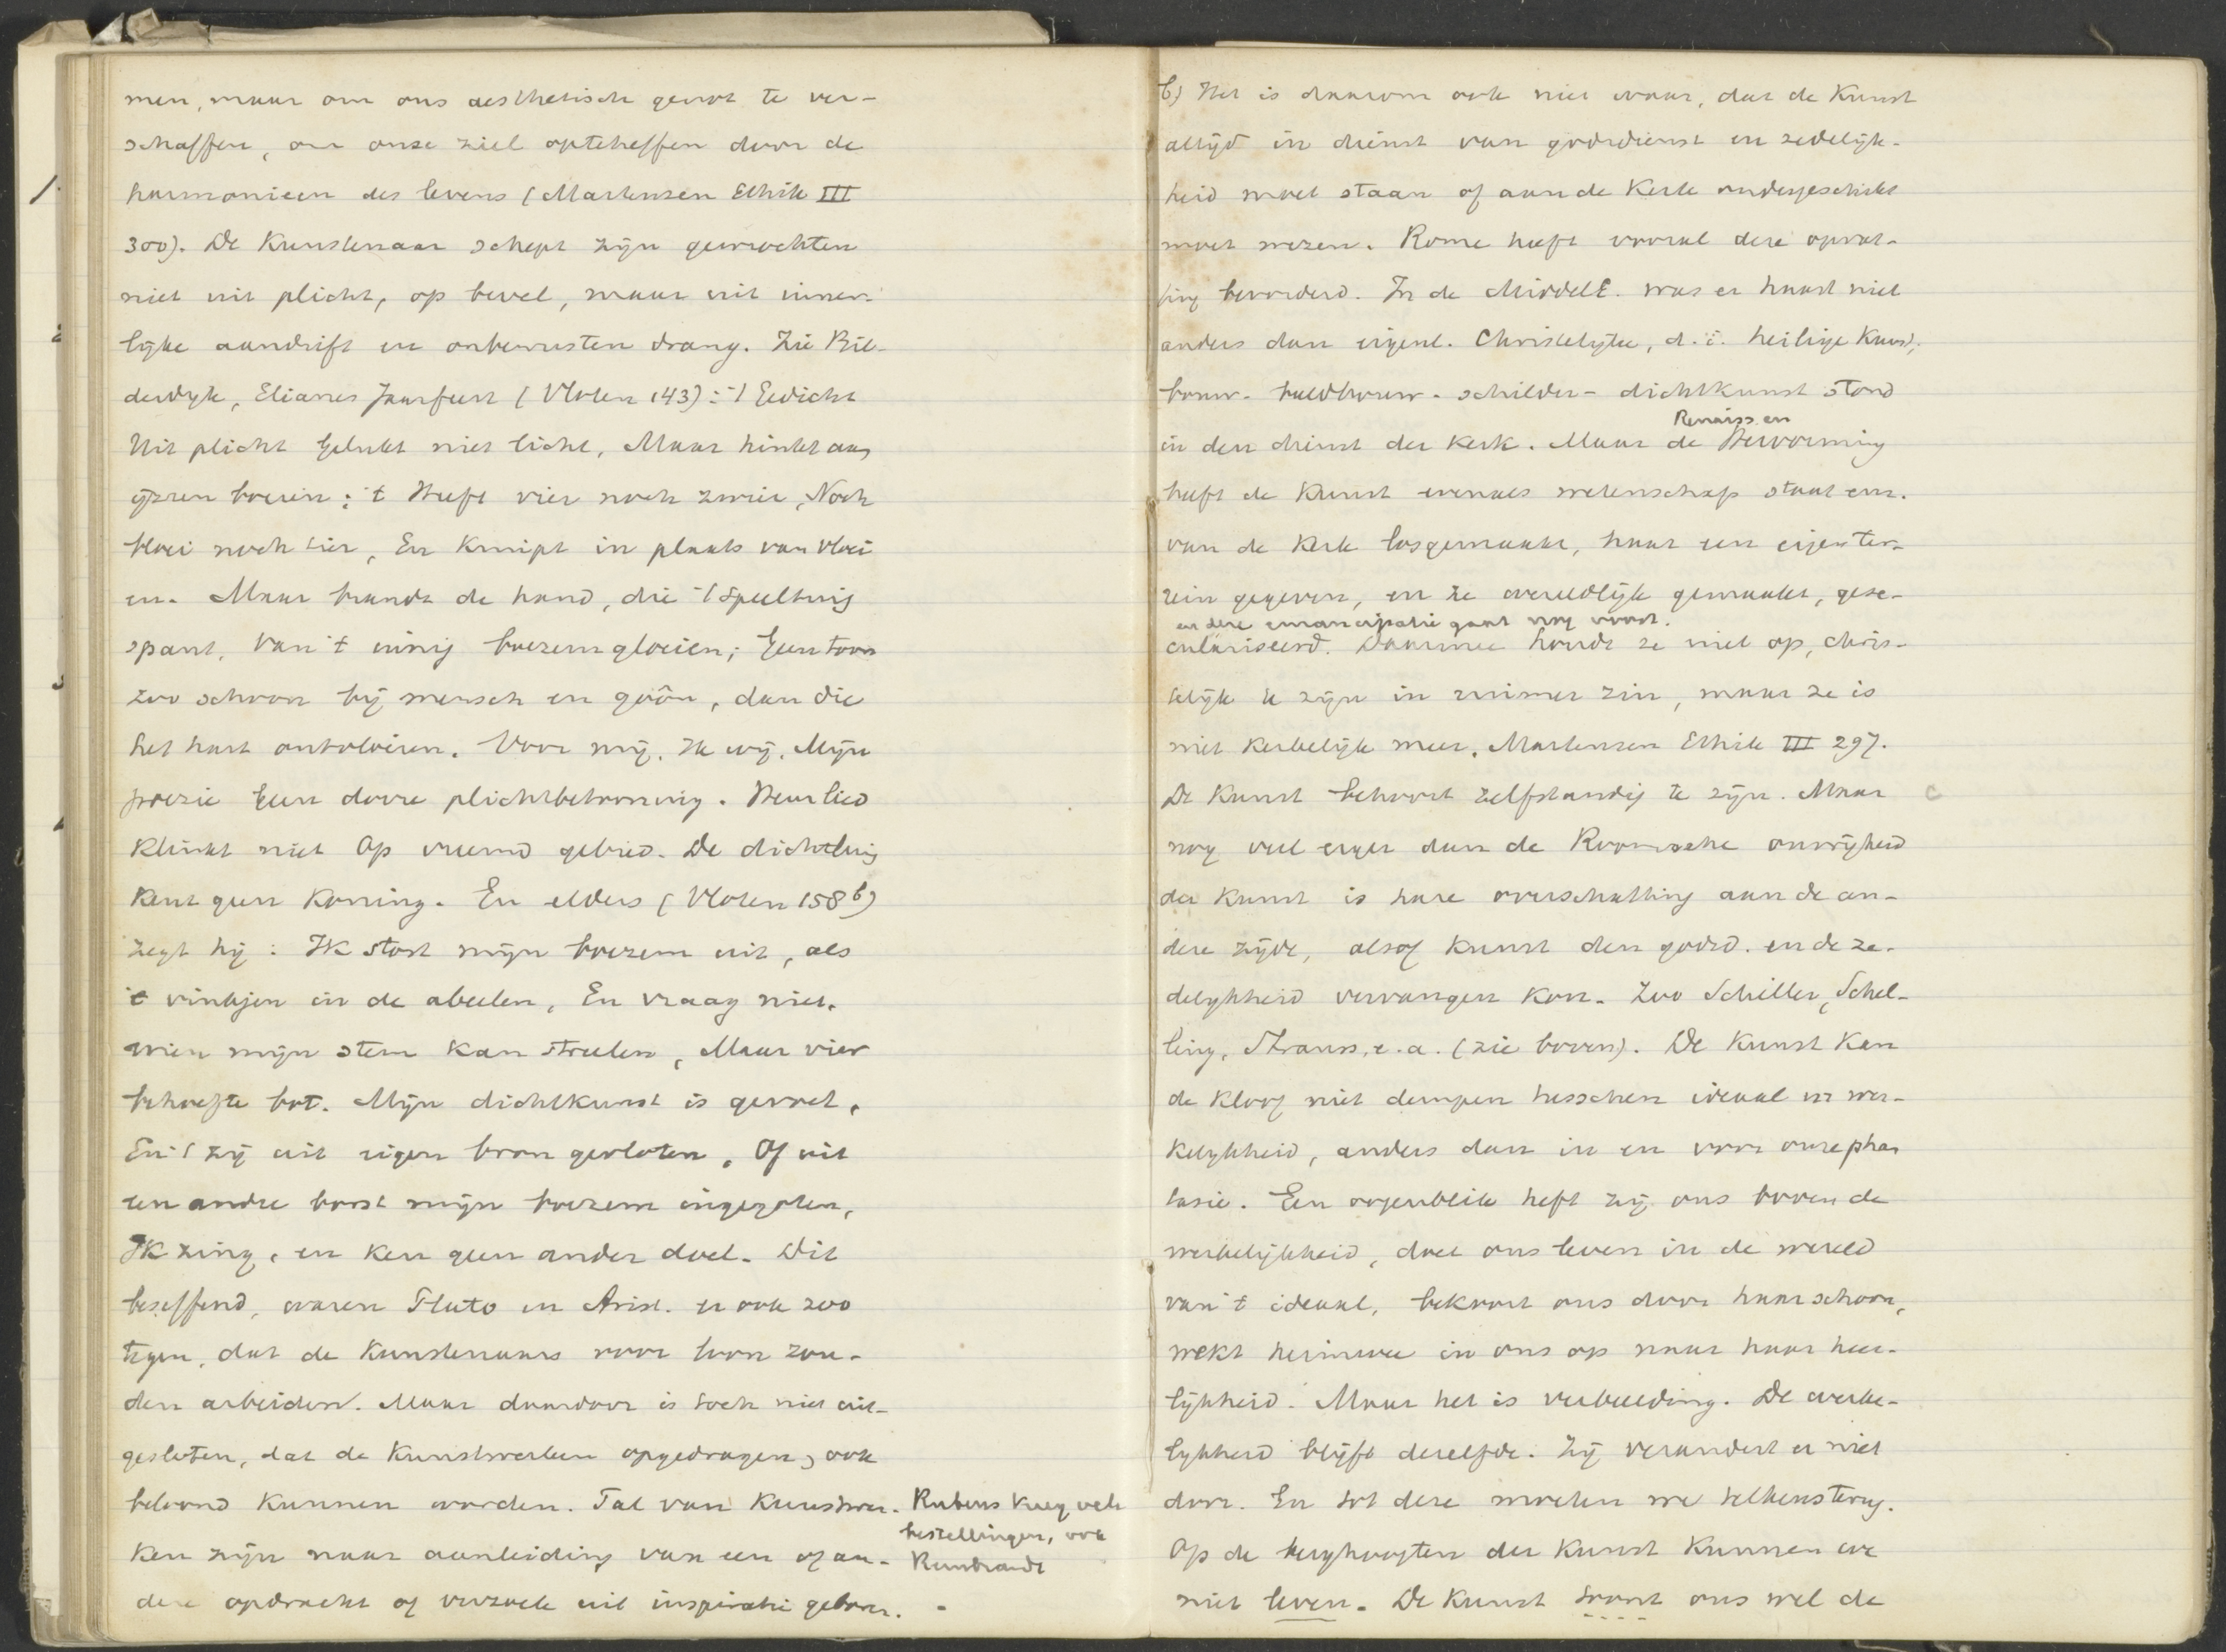 men, maar om ons aesthetisch genot te ver-
schaffen, om onze ziel opteheffen door de
harmonieen des levens (Martensen Ethik III
300). De Kunstenaar schept zijn gewrochten
niet uit plicht, op bevel, maar uit inner-
lijke aandrift en onbewusten drang. Zie Bil-
derdyk, Elianes Jaarfeest (Vloten 143): 't Gedicht
Uit plicht Gelukt niet licht, Maar hinkt aan
ijzren boeien; 't Heeft vier noch zwier, Noch
bloei noch tier, En Kruipt in plaats van vloei
en. Maar brandt de hand, die 't Speeltuig
spant, Van 't innig boezemgloeien; Geen toon
zoo schoon bij mensch en goôn, dan die
het hart ontvloeien. Voor mij. Ik wij. Mijn
poezie Geen dorre plichtbetooning. Heur lied
Klinkt niet Op vreemd gebied. De dichtluij
Kent geen Koning. En elders (Vloten 158b)
zegt hij: IK stort mijn boezem uit, als
't vinkjen in de abeelen, En vraag niet,
wien mijn stem Kan streelen, Maar vier
behoefte bot. Mijn dichtkunst is gevoel,
En 't zij uit eigen bron gevloten, Of uit
een andre borst mijn boezem ingegoten,
IK zing, en ken geen ander doel. Dit
beseffend, waren Plato en Arist. er ook zoo
tegen, dat de Kunstenaars voor loon zou-
den arbeiden. Maar daardoor is toch niet uit-
gesloten, dat de Kunstwerken opgedragen, ook
beloond Kunnen worden. Tal van Kunstwer-
Ken zijn naar aanleiding van een of an-
dere opdracht of verzoek uit inspiratie geboren.
Rubens kreeg vele
bestellingen, ook
Rembrandt
b) Het is daarom ook niet waar, dat de Kunst
altijd in dienst van godsdienst en zedelijk-
heid moet staan of aan de Kerk ondergeschikt
moet wezen. Rome heeft vooral deze opvat-
ting bevorderd. In de MiddelE. was er haast niet
anders dan eigenl. Christelijke, d.i. heilige Kunst;
bouw- beeldhouw- schilder- dichtkunst stond
Renaiss. en
in den dienst der Kerk. Maar de Hervorming
heeft de Kunst evenals wetenschap staat enz.
van de Kerk losgemaakt, haar een eigen ter-
rein gegeven, en ze wereldlijk gemaakt, gese-
en deze emancipatie gaat nog voort.
culariseerd. Daarmee houdt ze niet op, chris-
telijk te zijn in ruimer zin, maar ze is
niet Kerkelijk meer. Martensen Ethik III 297.
De Kunst behoort zelfstandig te zijn. Maar
nog veel erger dan de Roomsche onvrijheid
der Kunst is hare overschatting aan de an-
dere zijde, alsof Kunst den godsd. en de ze-
delykheid vervangen Kon. Zoo Schiller, Schel-
ling, Strauss, e.a. (zie boven). De Kunst Kan
de Kloof niet dempen tusschen ideaal en wer-
kelykheid, anders dan in en voor onze phan
tasie. Een oogenblik heft zij ons boven de
werkelijkheid, doet ons leven in de wereld
van 't ideaal, bekoort ons door haar schoon,
wekt heimwee in ons op naar haar heer-
lijkheid. Maar het is verbeelding. De werke-
lykheid blijft dezelfde. Zij verandert er niet
door. En tot deze moeten we telkens terug.
Op de berghoogten der Kunst Kunnen we
niet leven. De Kunst troost ons wel de